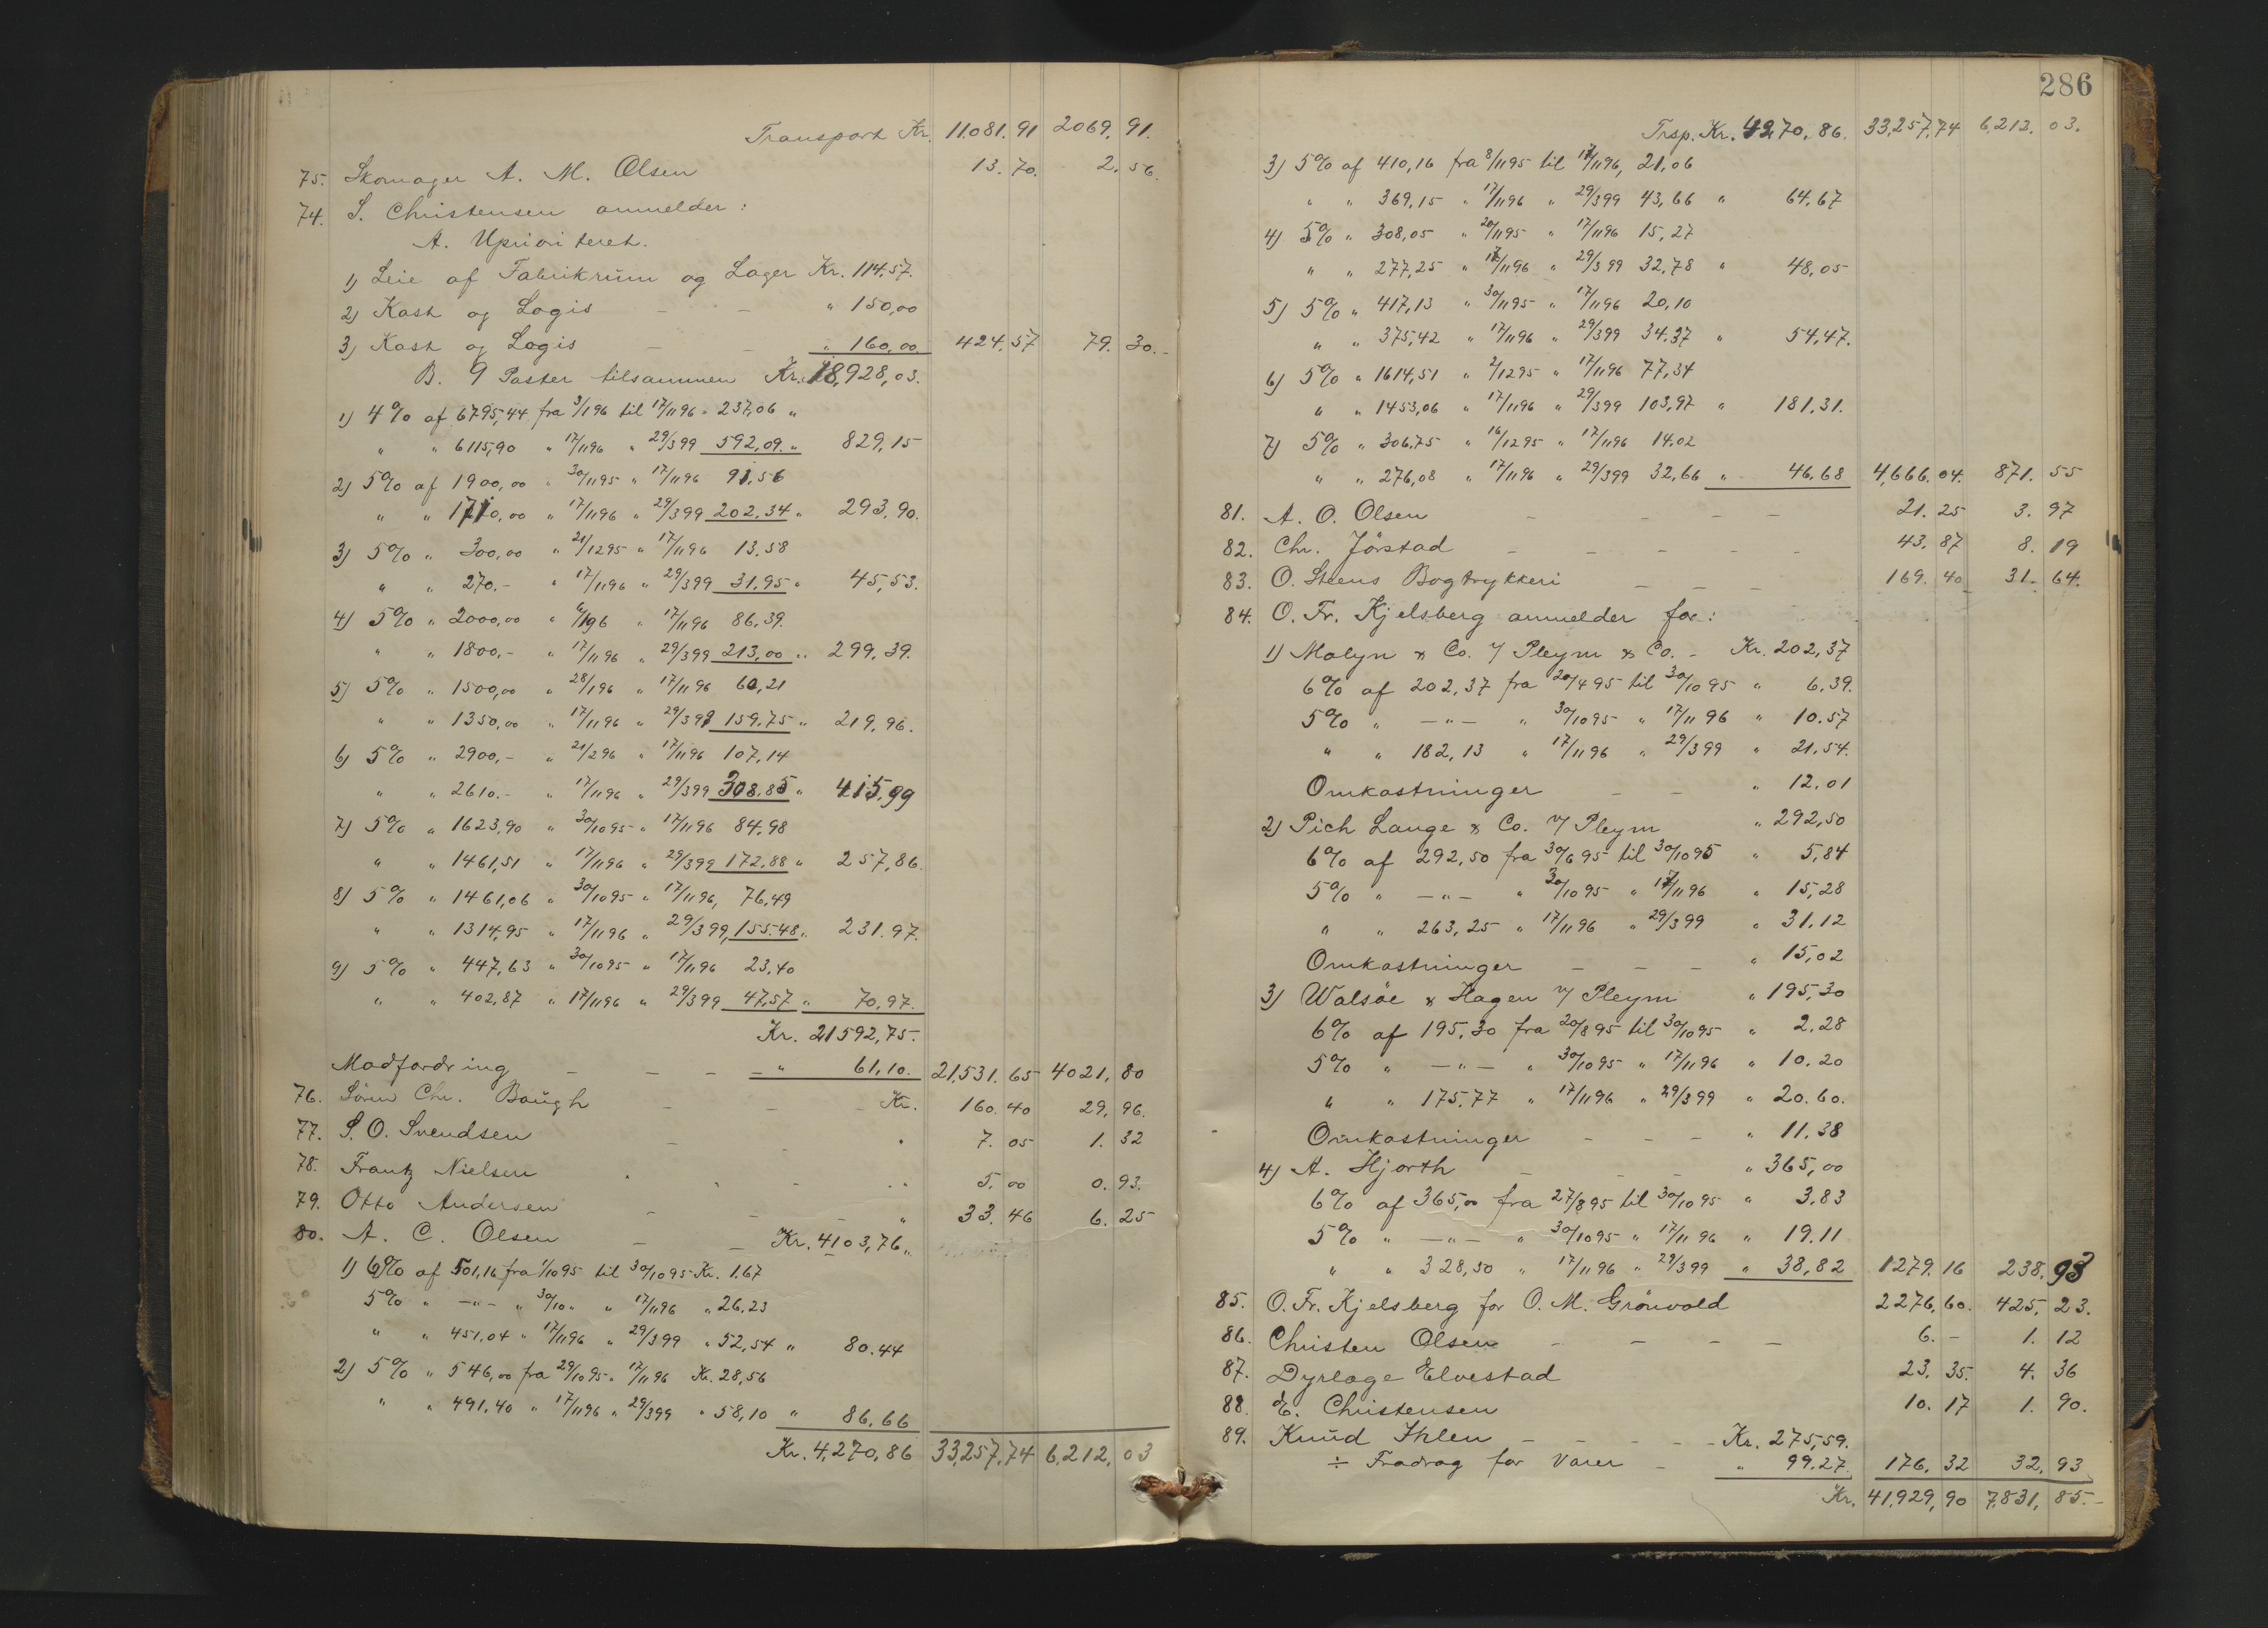 Transport Kr. 11.081. 91 2069. 91.
75. Skomager A. M. Olsen 13. 70. 2. 56.
74. S. Christensen anmelder:
A. Uprioriteret.
1) Leie af Fabrikrum og Lager Kr. 114.57.
2) Kost og Logis — — " 150,00
3) Kost og Logis — — " 160,00. 424. 57 79. 30.-
B. 9 Poster tilsammen Kr. 18,928,03.
1) 4% af 6795,44 fra 3/1 96 til 17/11 96 = 237,06 "
" " 6115,90 " 17/11 96 " 29/3 99 592,09. " 829,15
2) 5% af 1900,00 " 30/11 95 " 17/11 96 91,56
" " 1710,00 " 17/11 96 " 29/3 99 202,34 " 293,90.
3) 5% " 300,00 " 21/12 95 " 17/11 96 13,58
" " 270.- " 17/11 96 " 29/3 99 31,95 " 45,53.
4) 5% " 2000,00 " 6/1 96 " 17/11 96 86,39.
" " 1800.- " 17/11 96 " 29/3 99 213,00 " 299,39.
5) 5% " 1500,00 " 28/1 96 " 17/11 96 60,21
" " 1350,00 " 17/11 96 " 29/3 99 159,75 " 219,96.
6) 5% " 2900,- " 21/2 96 " 17/11 96 107,14
" " 2610.- " 17/11 96 " 29/3 99 308,85 " 415,99
7) 5% " 1623,90 " 30/10 95 " 17/11 96 84,98
" " 1461,51 " 17/11 96 " 29/3 99 172,88 " 257,86.
8) 5% " 1461,06 " 30/10 95 " 17/11 96, 76,49
" " 1314,95 " 17/11 96 " 29/3 99, 155.48 " 231.97.
9) 5% " 447,63 " 30/10 95 " 17/11 96 23,40
" " 402,87 " 17/11 96 " 29/3 99 47,57 " 70,97.
Kr. 21592,75.
Modfordring — — — — " 61,10. 21,531. 65 4021, 80
76. Sören Chr. Baugh — — Kr. 160. 40 29, 96.
77. S. O. Svendsen — " 7. 05 1. 32
78. Frantz Nielsen " 5. 00 0. 93.
79. Otto Andersen — — — " 33. 46 6. 25
80. A. C. Olsen — — Kr. 4103,76 "
1) 6% af 501,16 fra 1/10 95 til 30/10 95 Kr. 1.67
5% " —"— " 30/10 " " 17/11 96 " 26,23
" " 451,04 " 17/11 96 " 29/3 99 " 52,54 " 80.44
2) 5% " 546,00 fra 29/10 95 " 17/11 96 Kr. 28,56
" " 491,40 " 17/11 96 " 29/3 99 " 58,10 " 86,66
Kr. 4,270,86 33,257,74 6,212, 03
286
Trsp. Kr. 4270,86. 33,257,74 6,212. 03.
3) 5% af 410,16 fra 8/11 95 til 17/11 96, 21,06
" " 369,15 " 17/11 96 " 29/3 99 43,66 " 64,67
4) 5% " 308,05 " 20/11 95 " 17/11 96 15,27
" " 277,25 " 17/11 96 " 29/3 99 32,78 " 48,05
5) 5% " 417,13 " 30/11 95 " 17/11 96 20,10
" " 375,42 " 17/11 96 " 29/3 99 34.37 " 54,47.
6) 5% " 1614,51 " 2/12 95 " 17/11 96 77,34
" " 1453,06 " 17/11 96 " 29/3 99 103,97 " 181,31.
7) 5% " 306,75 " 16/12 95 " 17/11 96 14.02
" " 276,08 " 17/11 96 " 29/3 99 32,66 " 46,68 4,666. 04. 871. 55
81. A. O. Olsen — — — — 21. 25 3. 97
82. Chr. Jörstad — — — — — 43. 87 8. 19
83. O. Steens Bogtrykkeri — — — 169. 40 31. 64.
84. O. Fr. Kjelsberg anmelder for:
1) Molyn & Co. % Pleym & Co. - Kr. 202,37
6% af 202,37 fra 20/4 95 til 30/10 95 " 6,39.
5% " —"— " 30/10 95 " 17/11 96 " 10.57
" " 182,13 " 17/11 96 " 29/3 99 " 21,54.
Omkostninger — — " 12.01
2) Pich Lange & Co. % Pleym " 292,50
6% af 292,50 fra 30/6 95 til 30/10 95 " 5,84
5% " —"— " 30/10 95 " 17/11 96 " 15,28
" " 263,25 " 17/11 96 " 29/3 99 " 31,12
Omkostninger — — — " 15,02
3) Walsöe & Hagen % Pleym " 195,30
6% af 195,30 fra 20/8 95 til 30/10 95 " 2.28
5% " —"— " 30/10 95 " 17/11 96 " 10.20
" " 175,77 " 17/11 96 " 29/3 99 " 20.60.
Omkostninger — — — " 11.38
4) A. Hjorth — — — " 365,00
6% af 365,00 fra 27/8 95 til 30/10 95 " 3,83
5% " —"— " 30/10 95 " 17/11 96 " 19.11
" " 328,50 " 17/11 96 " 29/3 99 " 38,82 1279. 16 238. 93
85. O. Fr. Kjelsberg for O. M. Grönvold 2276,60. 425, 23.
86. Christen Olsen — — — — 6. - 1. 12
87. Dyrlæge Elvestad 23. 35. 4. 36
88. E. Christensen 10. 17 1. 90.
89. Knud Ihlen — — — — Kr. 275,59.
÷ Fradrag for Varer — " 99.27. 176. 32 32, 93
Kr. 41,929,90 7,831, 85.-